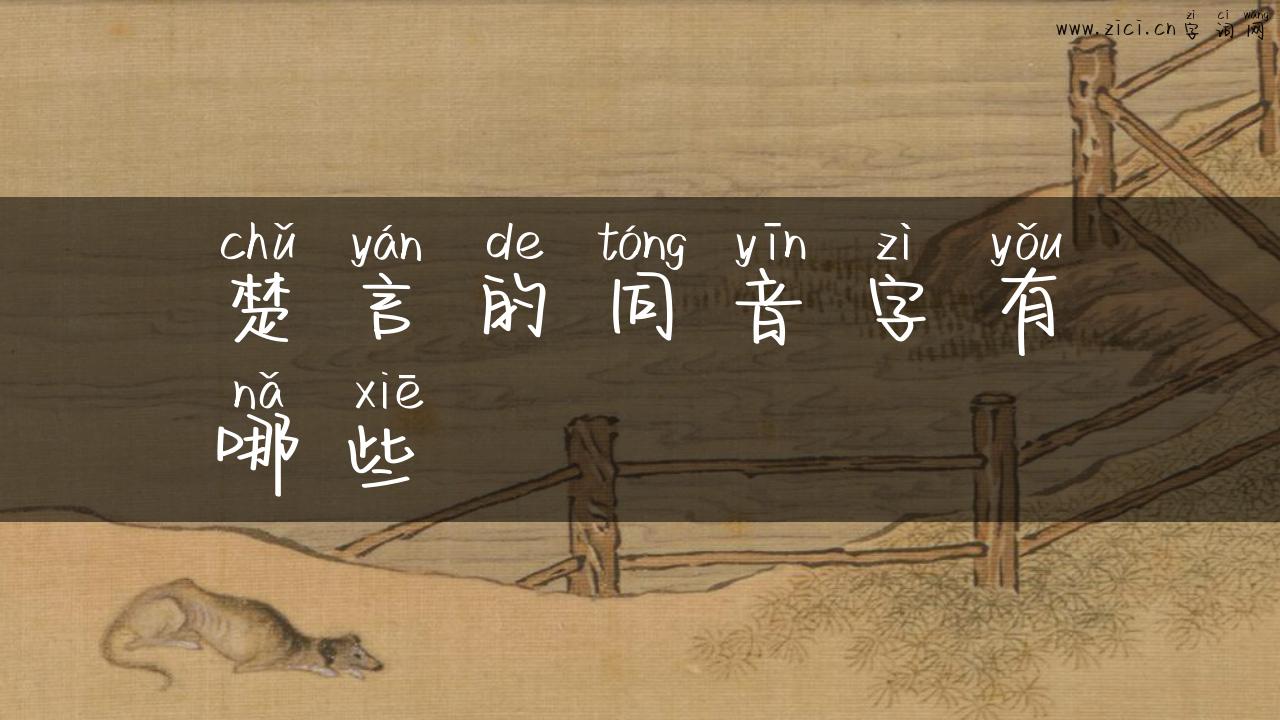 zì cí wǎng
www.zici.cn 字词网
chǔ yán de tóng yīn zì yǒu
楚言的同音字有
nǎ xiē
哪些